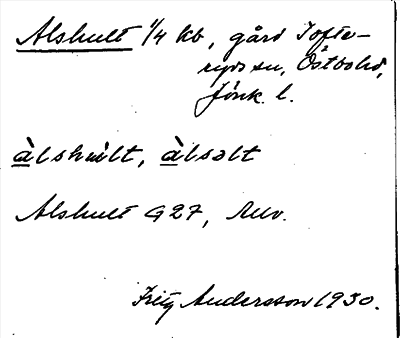 Alshult 1/4 kb, gård Tofte-
ryds sn, Östbo hd,
Jönk. l.
àlshùlt, àlsalt
Alshult G27,
Fritz Andersson 1930.